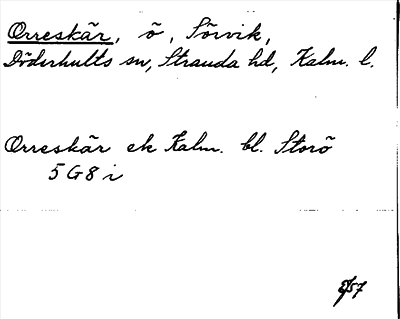 Orreskär, ö, Sörvik,
Döderhults sn, Stranda hd, Kalm. l.
Orreskär ek Kalm. bl. Storö
5 G 8 i